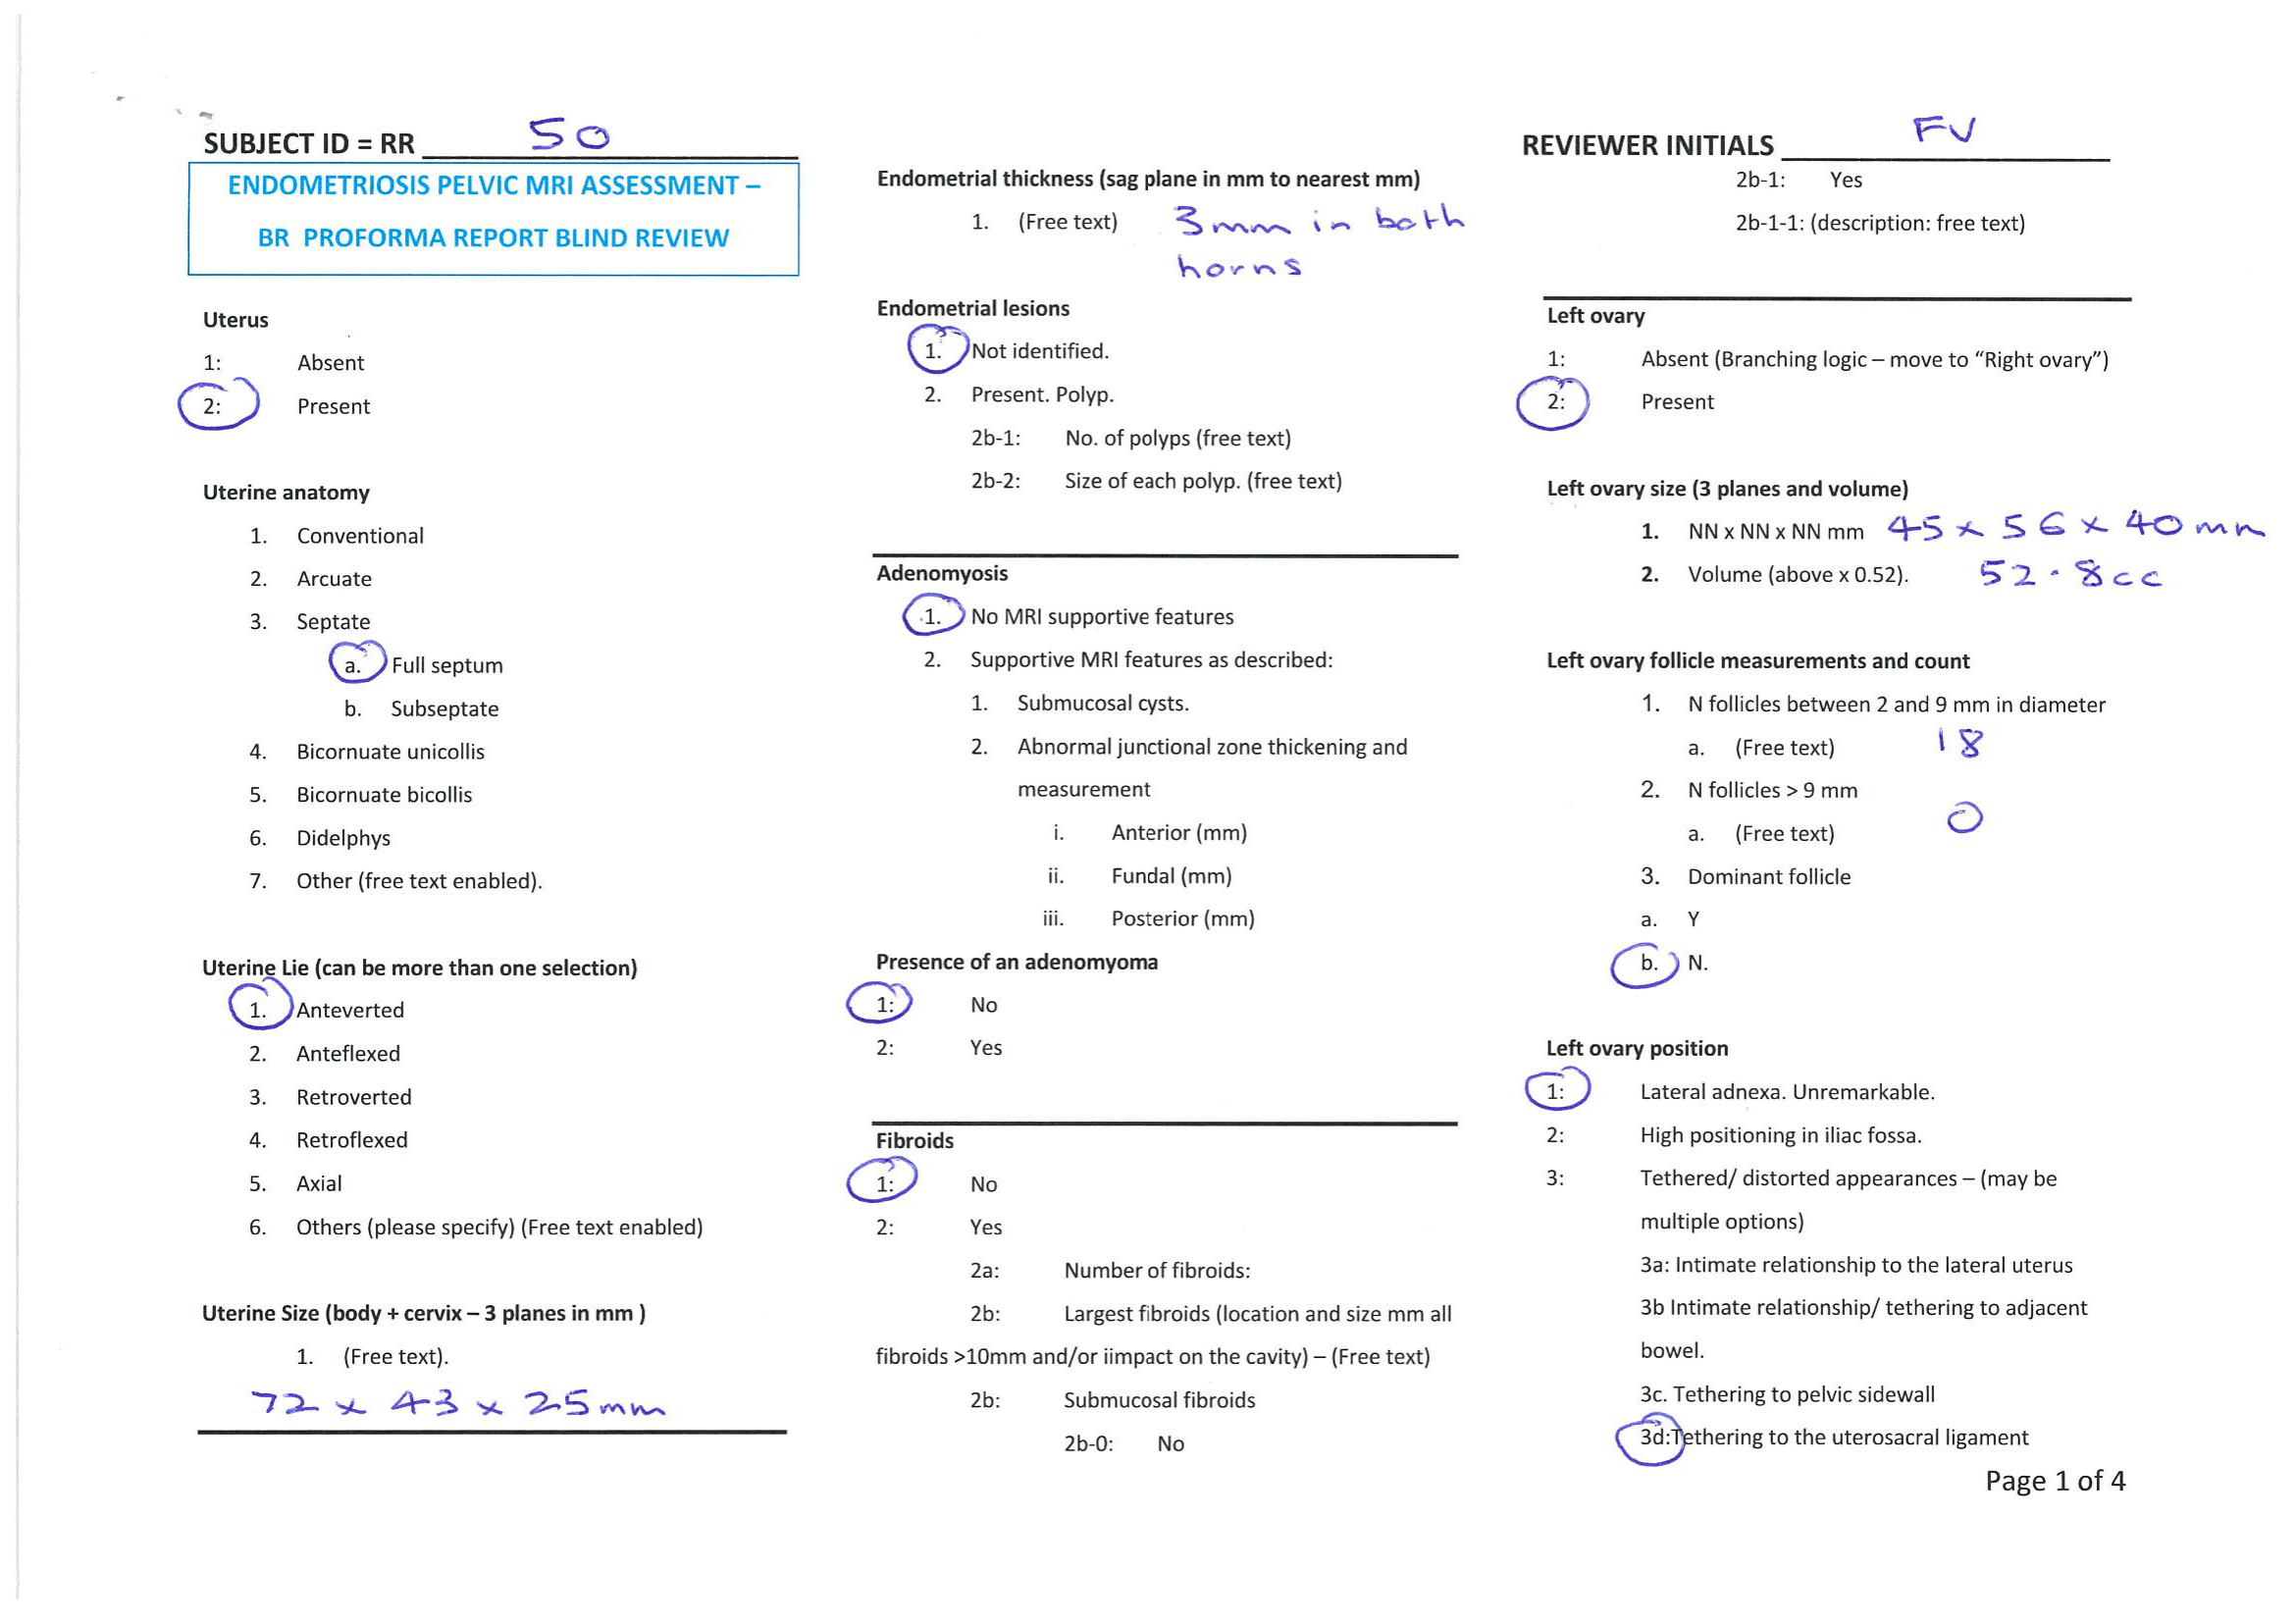 SUBJECT ID = RR 50
ENDOMETRIOSIS PELVIC MRI ASSESSMENT –
BR PROFORMA REPORT BLIND REVIEW
Uterus
1: Absent
2: Present
Uterine anatomy
1. Conventional
2. Arcuate
3. Septate
a. Full septum
b. Subseptate
4. Bicornuate unicollis
5. Bicornuate bicollis
6. Didelphys
7. Other (free text enabled).
Uterine Lie (can be more than one selection)
1. Anteverted
2. Anteflexed
3. Retroverted
4. Retroflexed
5. Axial
6. Others (please specify) (Free text enabled)
Uterine Size (body + cervix – 3 planes in mm )
1. (Free text).
72 x 43 x 25mm
Endometrial thickness (sag plane in mm to nearest mm)
1. (Free text) 3mm in both
horns
Endometrial lesions
1. Not identified.
2. Present. Polyp.
2b-1: No. of polyps (free text)
2b-2: Size of each polyp. (free text)
Adenomyosis
1. No MRI supportive features
2. Supportive MRI features as described:
1. Submucosal cysts.
2. Abnormal junctional zone thickening and
measurement
i. Anterior (mm)
ii. Fundal (mm)
iii. Posterior (mm)
Presence of an adenomyoma
1: No
2: Yes
Fibroids
1: No
2: Yes
2a: Number of fibroids:
2b: Largest fibroids (location and size mm all
fibroids >10mm and/or iimpact on the cavity) – (Free text)
2b: Submucosal fibroids
2b-0: No
REVIEWER INITIALS FV
2b-1: Yes
2b-1-1: (description: free text)
Left ovary
1: Absent (Branching logic – move to “Right ovary”)
2: Present
Left ovary size (3 planes and volume)
1. NN x NN x NN mm 45 x 56 x 40 mm
2. Volume (above x 0.52). 52.8cc
Left ovary follicle measurements and count
1. N follicles between 2 and 9 mm in diameter
a. (Free text) 18
2. N follicles > 9 mm
a. (Free text) 0
3. Dominant follicle
a. Y
b. N.
Left ovary position
1: Lateral adnexa. Unremarkable.
2: High positioning in iliac fossa.
3: Tethered/ distorted appearances – (may be
multiple options)
3a: Intimate relationship to the lateral uterus
3b Intimate relationship/ tethering to adjacent
bowel.
3c. Tethering to pelvic sidewall
3d:Tethering to the uterosacral ligament
Page 1 of 4